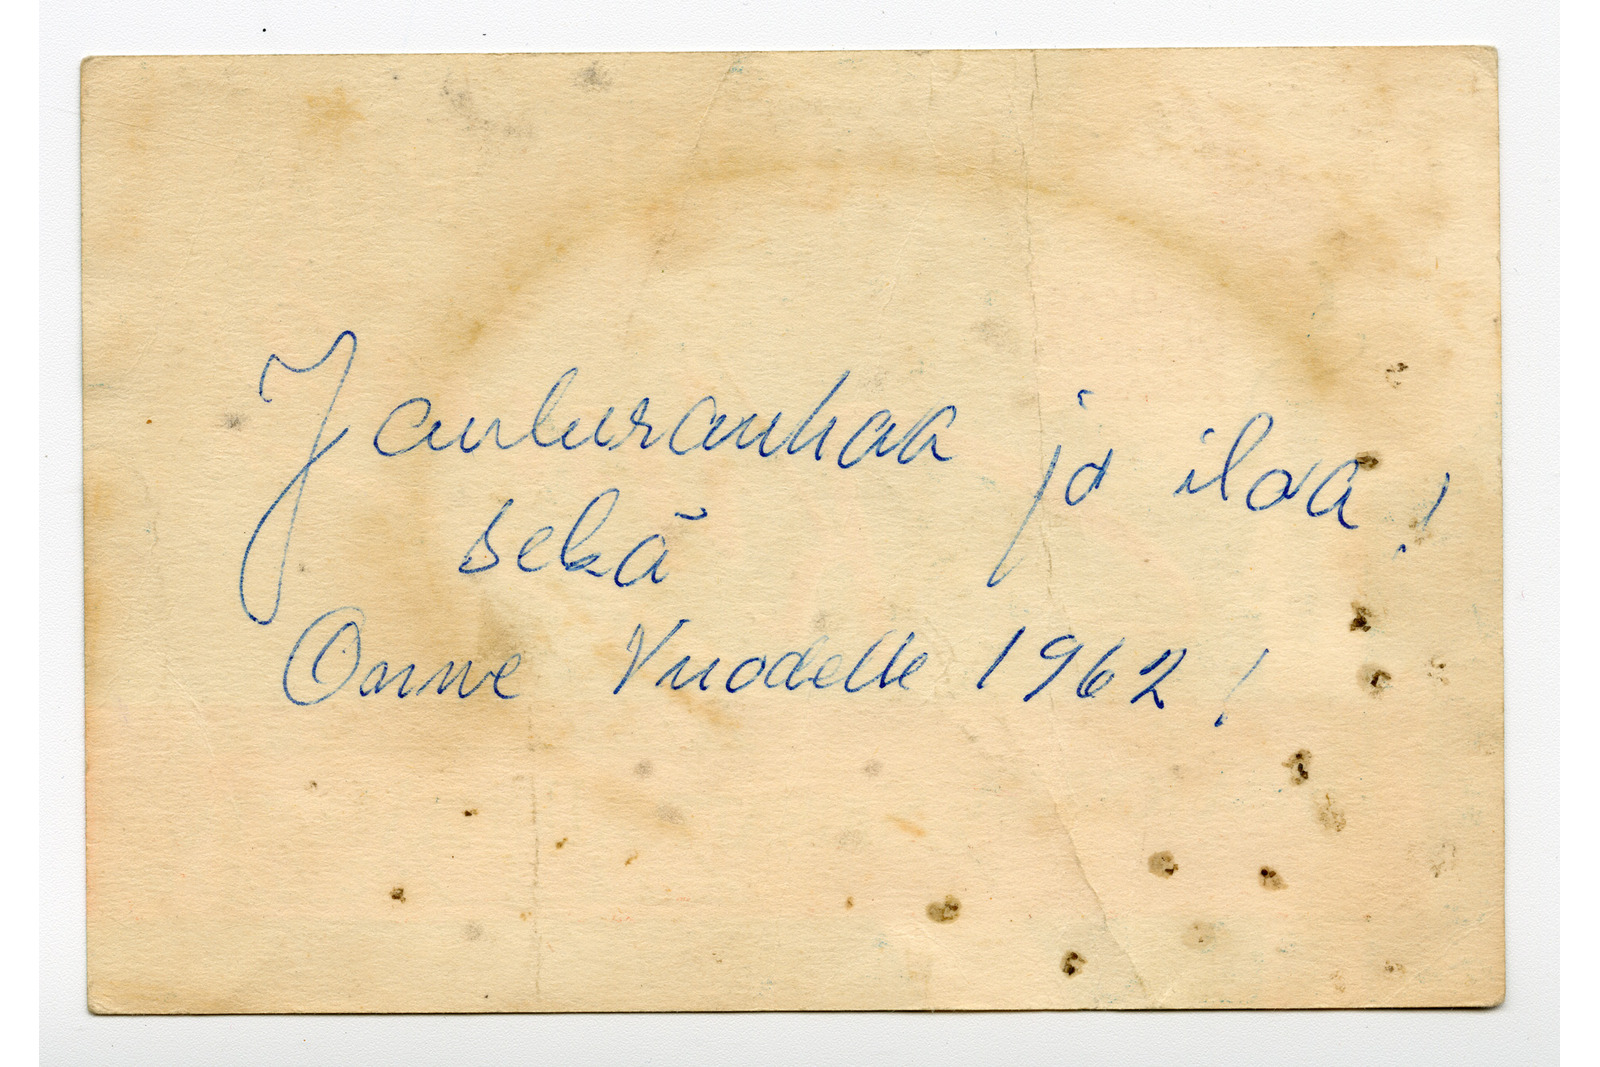 Joulurauhaa ja iloa!
sekä
Onne Vuodelle 1962!